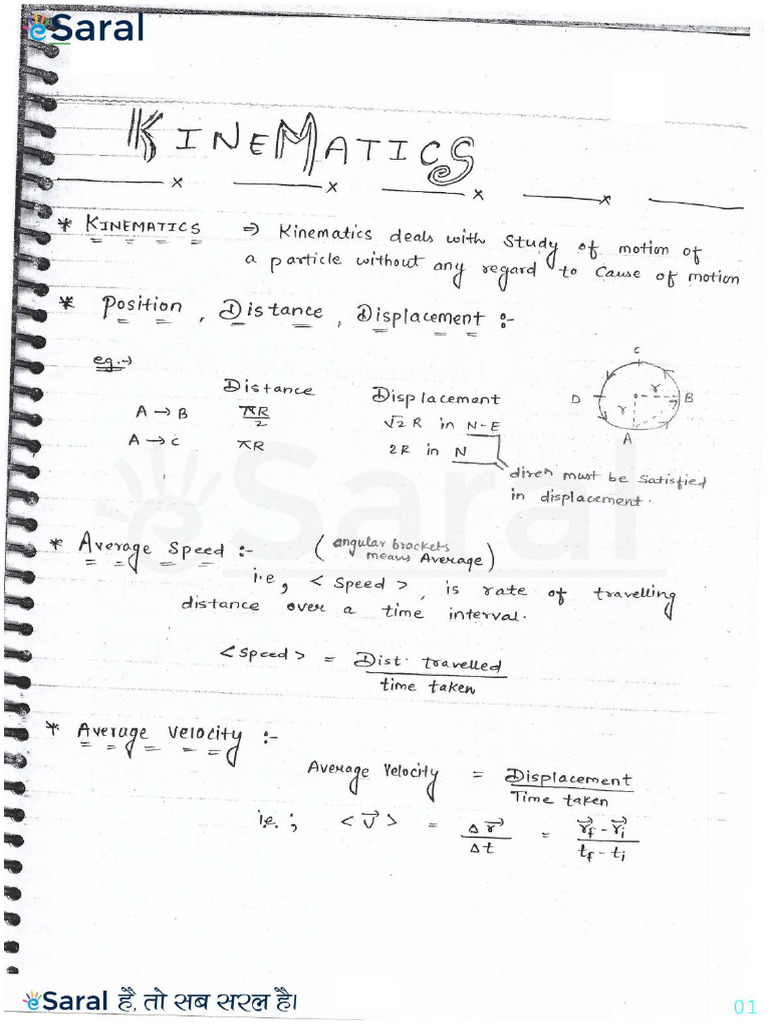 eSaral
KINEMATICS
* KINEMATICS ⇒ Kinematics deals with Study of motion of
a particle without any regard to Cause of motion
* Position, Distance, Displacement :-
eg.→
Distance Displacement
A → B πR/2 √2 R in N-E
A → C πR 2R in N
dirⁿ must be satisfied
in displacement.
C
D r B
r
A
eSaral
* Average Speed :- (angular brackets
means Average)
i.e, < Speed >, is rate of travelling
distance over a time interval.
< Speed > = Dist. travelled
time taken
* Average Velocity :-
Average Velocity = Displacement
Time taken
i.e. ; < v⃗ > = Δr⃗/Δt = (r⃗f - r⃗i)/(tf - ti)
eSaral है, तो सब सरल है।
01